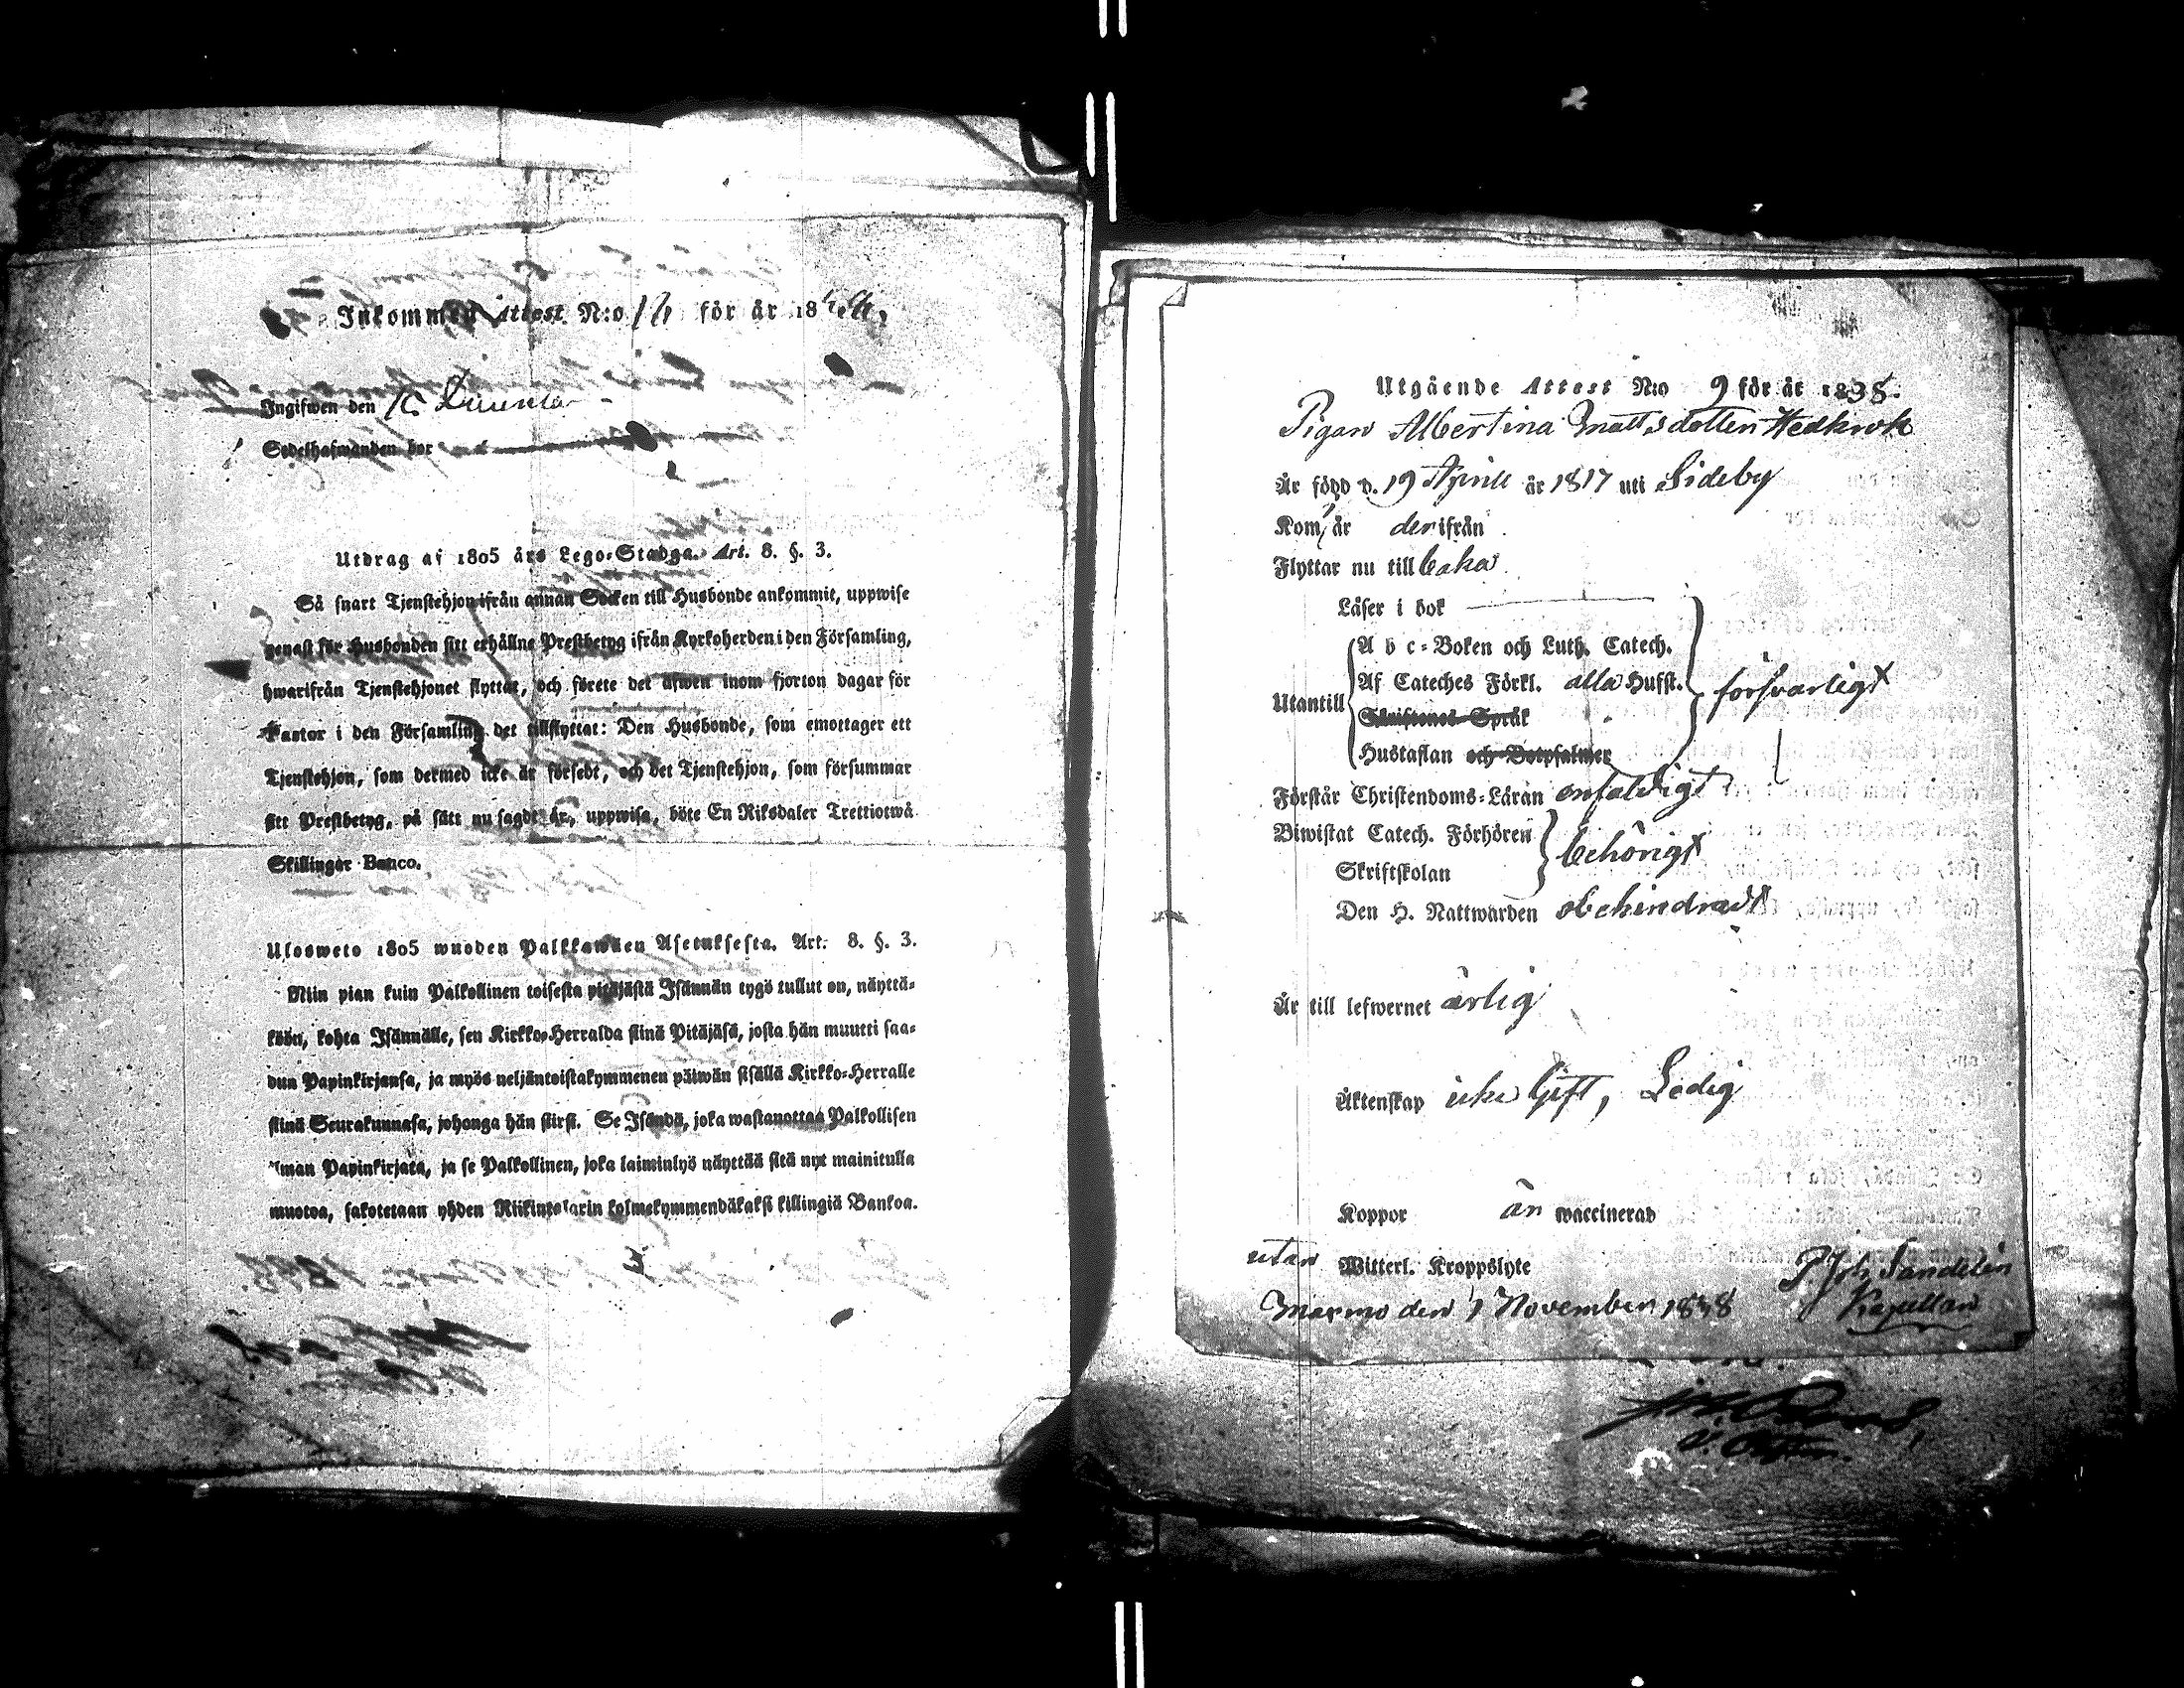 Inkommen Attest N:o 16 för år 18
Ingifwen den
Sedelhafwanden bor
Utdrag af 1805 års Lego-Stadga. Art. 8. §. 3.
Så snart Tjenstehjon ifrån annan Socken till Husbonde ankommit, uppwise
genast för Husbonden sitt erhållne Prestbetyg ifrån Kyrkoherden i den Församling,
hwarifrån Tjenstehjonet flyttat, och förete det äfwen inom fjorton dagar för
Pastor i den Församling det tillflyttat: Den Husbonde, som emottager ett
Tjenstehjon, som dermed icke är försedt, och det Tjenstehjon, som försummar
sitt Prestbetyg, på sätt nu sagdt är, uppwisa, böte En Riksdaler Trettiotwå
Skillingar Banco.
Ulosweto 1805 wuoden Palkkawäen Asetuksesta. Art. 8. §. 3.
Niin pian kuin Palkollinen toisesta pitäjästä Isännän tygö tullut on, näyttä-
köön, kohta Isännälle, sen Kirkko-Herralda siinä Pitäjäsä, josta hän muutti saa-
dun Papinkirjansa, ja myös neljäntoistakymmenen päiwän sisällä Kirkko-Herralle
siinä Seurakunnasa, johonga hän siirsi. Se Isändä, joka wastanottaa Palkollisen
ilman Papinkirjata, ja se Palkollinen, joka laiminlyö näyttää sitä nyt mainitulla
muotoa, sakotetaan yhden Riikintalarin kolmekymmendäkaksi killingiä Bankoa.
Utgående Attest N:o 9 för år 1838.
Pigan Albertina Mattsdotter Hedkrok
Är född d. 19 Aprill år 1817 uti Sideby
Kom, år derifrån
Flyttar nu till baka
Läser i bok
A b c-Boken och Luth. Catech.
Utantill Af Cateches Förkl. alla Hufst. försvarligt
Skriftenes Språk
Hustaflan och Botpsalmer
Förstår Christendoms-Läran enfaldigt
Biwistat Catech. Förhören behörigt
Skriftskolan
Den H. Nattwarden obehindradt
Är till lefwernet ärlig
Äktenskap icke Gift, Ledig
Koppor än waccinerad
utan Witterl. Kroppslyte
Mermo den 1 November 1838
P Joh Sandelin
Kapellan